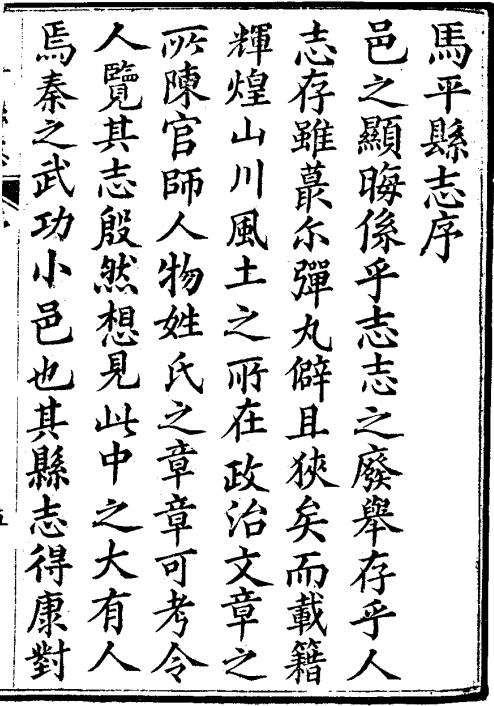 馬平縣志序
邑之顯晦係乎志志之廢舉存乎人
志存雖蕞尒彈丸僻且狹矣而載籍
輝煌山川風土之所在政治文章之
所陳官師人物姓氏之章章可考令
人覽其志殷然想見此中之大有人
焉秦之武功小邑也其縣志得康對